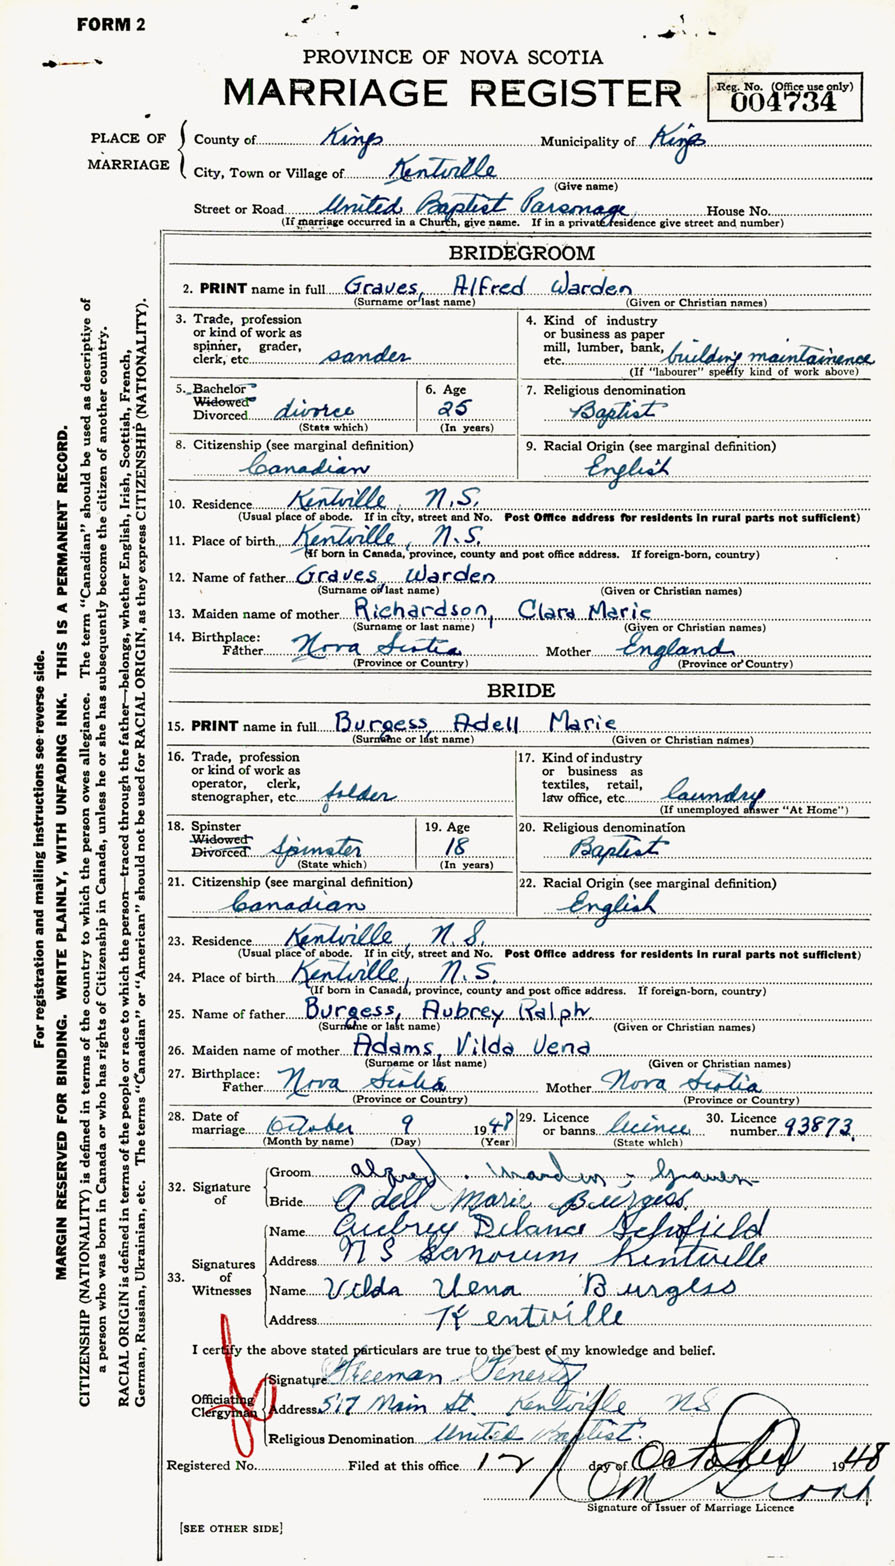 FORM 2
PROVINCE OF NOVA SCOTIA
MARRIAGE REGISTER
Reg. No. (Office use only)
004734
PLACE OF MARRIAGE
County of Kings Municipality of Kings
City, Town or Village of Kentville
(Give name)
Street or Road United Baptist Parsonage House No.
(If marriage occurred in a Church, give name. If in a private residence give street and number)
BRIDEGROOM
2. PRINT name in full Graves, Alfred Warden
(Surname or last name) (Given or Christian names)
3. Trade, profession or kind of work as spinner, grader, clerk, etc. sander
4. Kind of industry or business as paper mill, lumber, bank, etc. building maintainence
(If "labourer" specify kind of work above)
5. Bachelor Widowed Divorced divorce
(State which)
6. Age 25
(In years)
7. Religious denomination
Baptist
8. Citizenship (see marginal definition)
Canadian
9. Racial Origin (see marginal definition)
English
10. Residence Kentville, N.S.
(Usual place of abode. If in city, street and No. Post Office address for residents in rural parts not sufficient)
11. Place of birth Kentville, N.S.
(If born in Canada, province, county and post office address. If foreign-born, country)
12. Name of father Graves Warden
(Surname or last name) (Given or Christian names)
13. Maiden name of mother Richardson, Clara Marie
(Surname or last name) (Given or Christian names)
14. Birthplace:
Father Nova Scotia Mother England
(Province or Country) (Province or Country)
BRIDE
15. PRINT name in full Burgess, Adell Marie
(Surname or last name) (Given or Christian names)
16. Trade, profession or kind of work as operator, clerk, stenographer, etc. folder
17. Kind of industry or business as textiles, retail, law office, etc. laundry
(If unemployed answer "At Home")
18. Spinster Widowed Divorced Spinster
(State which)
19. Age 18
(In years)
20. Religious denomination
Baptist
21. Citizenship (see marginal definition)
Canadian
22. Racial Origin (see marginal definition)
English
23. Residence Kentville, N.S.
(Usual place of abode. If in city, street and No. Post Office address for residents in rural parts not sufficient)
24. Place of birth Kentville, N.S.
(If born in Canada, province, county and post office address. If foreign-born, country)
25. Name of father Burgess, Aubrey Ralph
(Surname or last name) (Given or Christian names)
26. Maiden name of mother Adams, Vilda Vena
(Surname or last name) (Given or Christian names)
27. Birthplace:
Father Nova Scotia Mother Nova Scotia
(Province or Country) (Province or Country)
28. Date of marriage October 9 1948
(Month by name) (Day) (Year)
29. Licence or banns licence
(State which)
30. Licence number 93873
32. Signature of
Groom Alfred Warden Graves
Bride Adell Marie Burgess
33. Signatures of Witnesses
Name Aubrey Schofield
Address N S Kentville
Name Vilda Vena Burgess
Address Kentville
I certify the above stated particulars are true to the best of my knowledge and belief.
Officiating Clergyman
Signature Freeman Fenerty
Address 517 Main St. Kentville NS
Religious Denomination United Baptist.
Registered No. Filed at this office 12 day of October 1948
Signature of Issuer of Marriage Licence
[SEE OTHER SIDE]
For registration and mailing instructions see reverse side.
MARGIN RESERVED FOR BINDING. WRITE PLAINLY, WITH UNFADING INK. THIS IS A PERMANENT RECORD.
CITIZENSHIP (NATIONALITY) is defined in terms of the country to which the person owes allegiance. The term "Canadian" should be used as descriptive of
a person who was born in Canada or who has rights of Citizenship in Canada, unless he or she has subsequently become the citizen of another country.
RACIAL ORIGIN is defined in terms of the people or race to which the person—traced through the father—belongs, whether English, Irish, Scottish, French,
German, Russian, Ukrainian, etc. The terms "Canadian" or "American" should not be used for RACIAL ORIGIN, as they express CITIZENSHIP (NATIONALITY).